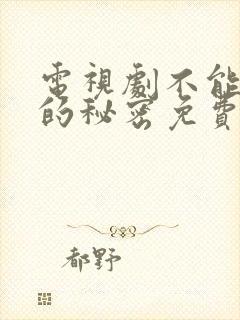 電視劇不能
的秘密免費
都野